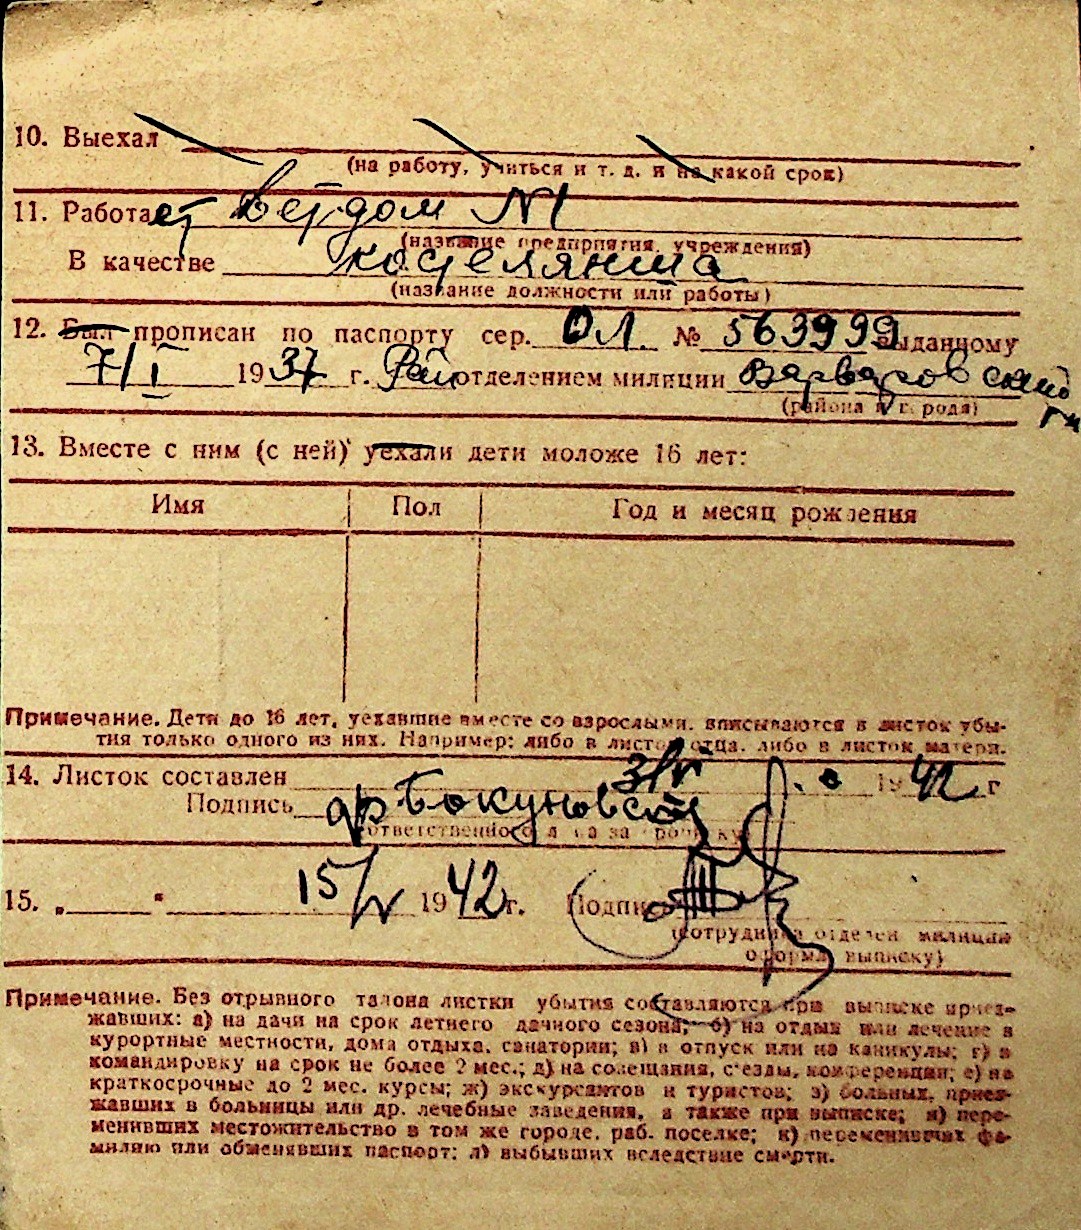 10. Выехал
(на работу, учиться и т. д. и на какой срок)
11. Работает Ветдом №1
(название предприятия, учреждения)
В качестве костелянша
(название должности или работы)
12. Был прописан по паспорту сер. ОЛ. № 563999 выданному
7/I 1937 г. Рай отделением милиции Варваровский
(района и г. рода)
13. Вместе с ним (с ней) уехали дети моложе 16 лет:
Имя Пол Год и месяц рождения
Примечание. Дети до 16 лет, уехавшие вместе со взрослыми, вписываются в листок убы-
тия только одного из них. Например: либо в листок отца, либо в листок матери.
14. Листок составлен 3/V 1942 г
Подпись
(ответственного лица за прописку)
15. „ “ 15/V 1942 г. Подпись
(сотрудника отделен милиции
оформл выписку)
Примечание. Без отрывного талона листки убытия составляются при выписке приез-
жавших: а) на дачи на срок летнего дачного сезона; б) на отдых или лечение в
курортные местности, дома отдыха, санатории; в) в отпуск или на каникулы; г) в
командировку на срок не более 2 мес.; д) на совещания, съезды, конференции; е) на
краткосрочные до 2 мес. курсы; ж) экскурсантов и туристов; з) больных, приез-
жавших в больницы или др. лечебные заведения, а также при выписке; и) пере-
менивших местожительство в том же городе, раб. поселке; к) переменивших фа-
милию или обменявших паспорт; л) выбывших вследствие смерти.